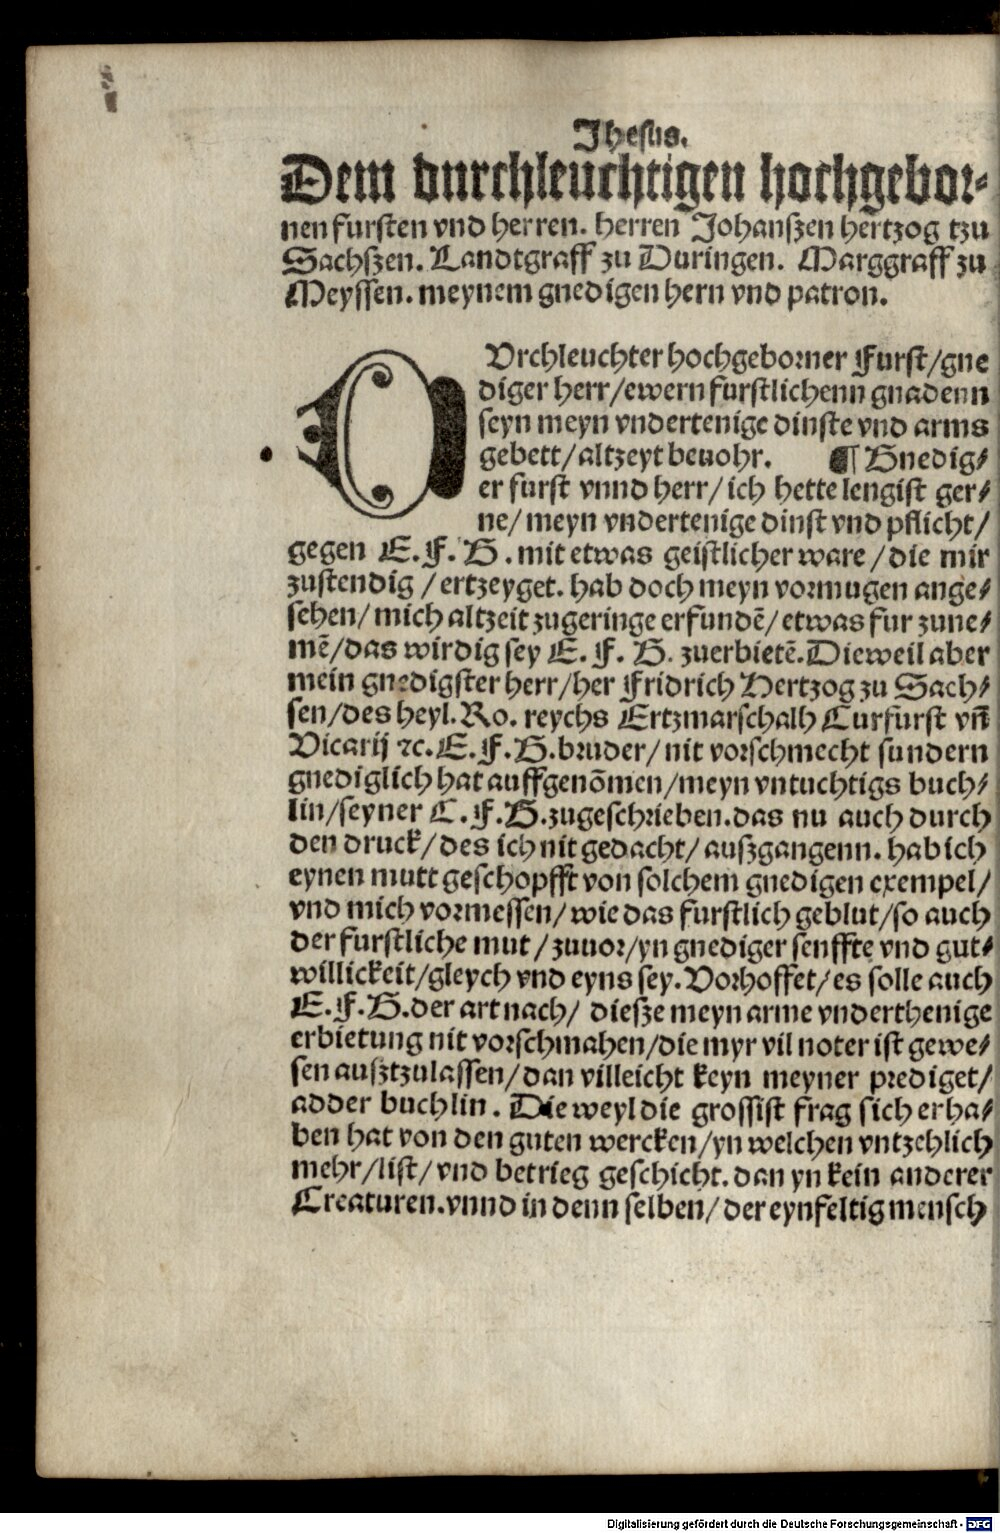 Jhesus.
Dem durchleuchtigen hochgebor-
nen fursten vnd herren. herren Johanszen hertzog tzu
Sachszen. Landtgraff zu Duringen. Marggraff zu
Meyssen. meynem gnedigen hern vnd patron.
DVrchleuchter hochgeborner Furst/gne
diger herr/ewern furstlichenn gnadenn
seyn meyn vndertenige dinste vnd arms
gebett/altzeyt beuohr. ¶ Gnedig/
er furst vnnd herr/ich hette lengist ger/
ne/meyn vndertenige dinst vnd pflicht/
gegen E.F.G. mit etwas geistlicher ware/die mir
zustendig/ertzeyget. hab doch meyn vormugen ange/
sehen/mich altzeit zugeringe erfundē/etwas fur zune/
mē/das wirdig sey E.F.G. zuerbietē. Dieweil aber
mein gnedigster herr/her Fridrich Hertzog zu Sach/
sen/des heyl. Ro. reychs Ertzmarschalh Curfurst vñ
Vicarij ⁊c. E.F.G. bruder/nit vorschmecht sundern
gnediglich hat auffgenōmen/meyn vntuchtigs buch/
lin/seyner C.F.G. zugeschrieben. das nu auch durch
den druck/des ich nit gedacht/auszgangenn. hab ich
eynen mutt geschopfft von solchem gnedigen exempel/
vnd mich vormessen/wie das furstlich geblut/so auch
der furstliche mut/zuuor/yn gnediger senffte vnd gut-
willickeit/gleych vnd eyns sey. Vorhoffet/es solle auch
E.F.G. der art nach/diesze meyn arme vnderthenige
erbietung nit vorschmahen/die myr vil noter ist gewe/
sen ausztzulassen/dan villeicht keyn meyner prediget/
adder buchlin. Die weyl die grossist frag sich erha/
ben hat von den guten wercken/yn welchen vntzehlich
mehr/list/vnd betrieg geschicht. dan yn kein anderer
Creaturen. vnnd in denn selben/der eynfeltig mensch
Digitalisierung gefördert durch die Deutsche Forschungsgemeinschaft - DFG